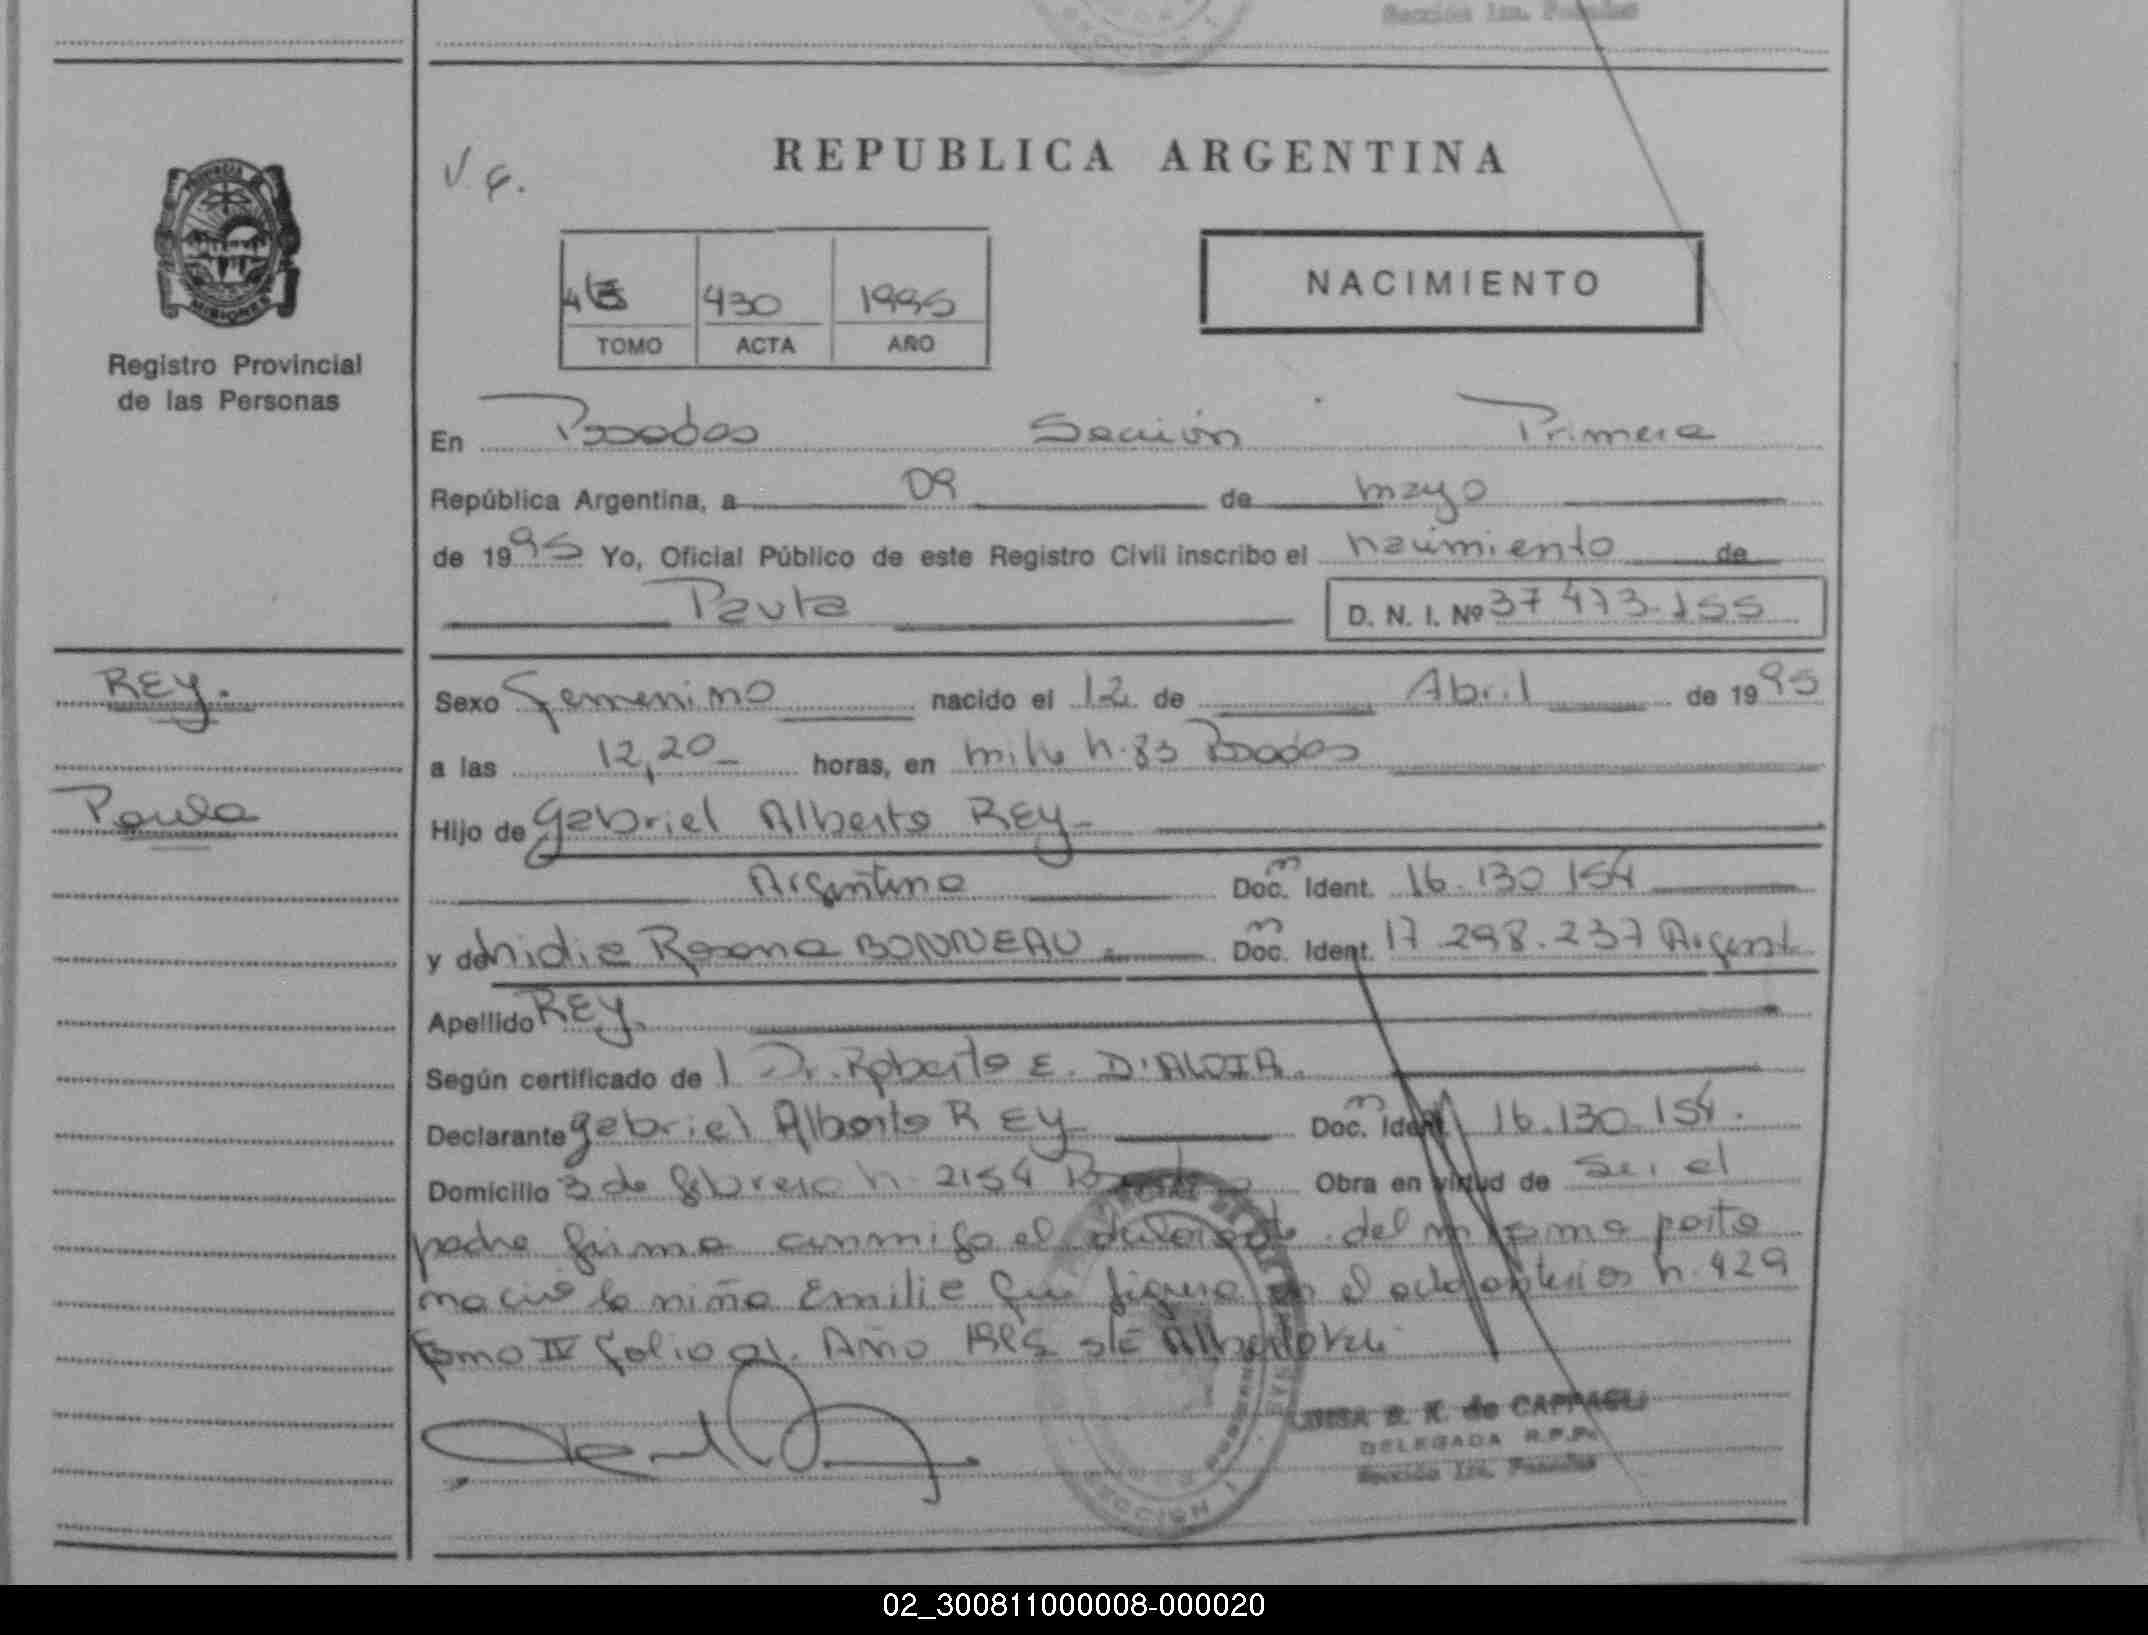 Sección 1ra. Posadas
REPUBLICA ARGENTINA
PROVINCIA DE
MISIONES
Registro Provincial
de las Personas
430 1995
TOMO ACTA AÑO
NACIMIENTO
En Posadas Sección Primera
República Argentina, a 09 de mayo
de 1995 Yo, Oficial Público de este Registro Civil inscribo el nacimiento de
Paula D. N. I. Nº 37 473.155
REY.
Paula
Sexo Femenino nacido el 12 de Abril de 1995
a las 12,20 horas, en mitre n. 83 Posadas
Hijo de Gabriel Alberto REY
Argentino Doc. Ident. 16.130 154
y de Nidia Rosana BONNEAU Doc. Ident. 17.298.237 Argent
Apellido REY.
Según certificado de l Dr. Roberto E. D'ALOIA.
Declarante Gabriel Alberto REY Doc. Ident. 16.130.154.
Domicilio 3 de febrero n. 2154 Posadas Obra en virtud de Ser el
padre firma conmigo el declarante. del mismo parto
nacio la niña Emilia que figura en el acta anterior n. 429
Tomo IV folio Año 1995
LUISA B. K. de CAPPAGLI
DELEGADA R.P.P.
Sección 1ra. Posadas
SECCION 1
02_300811000008-000020